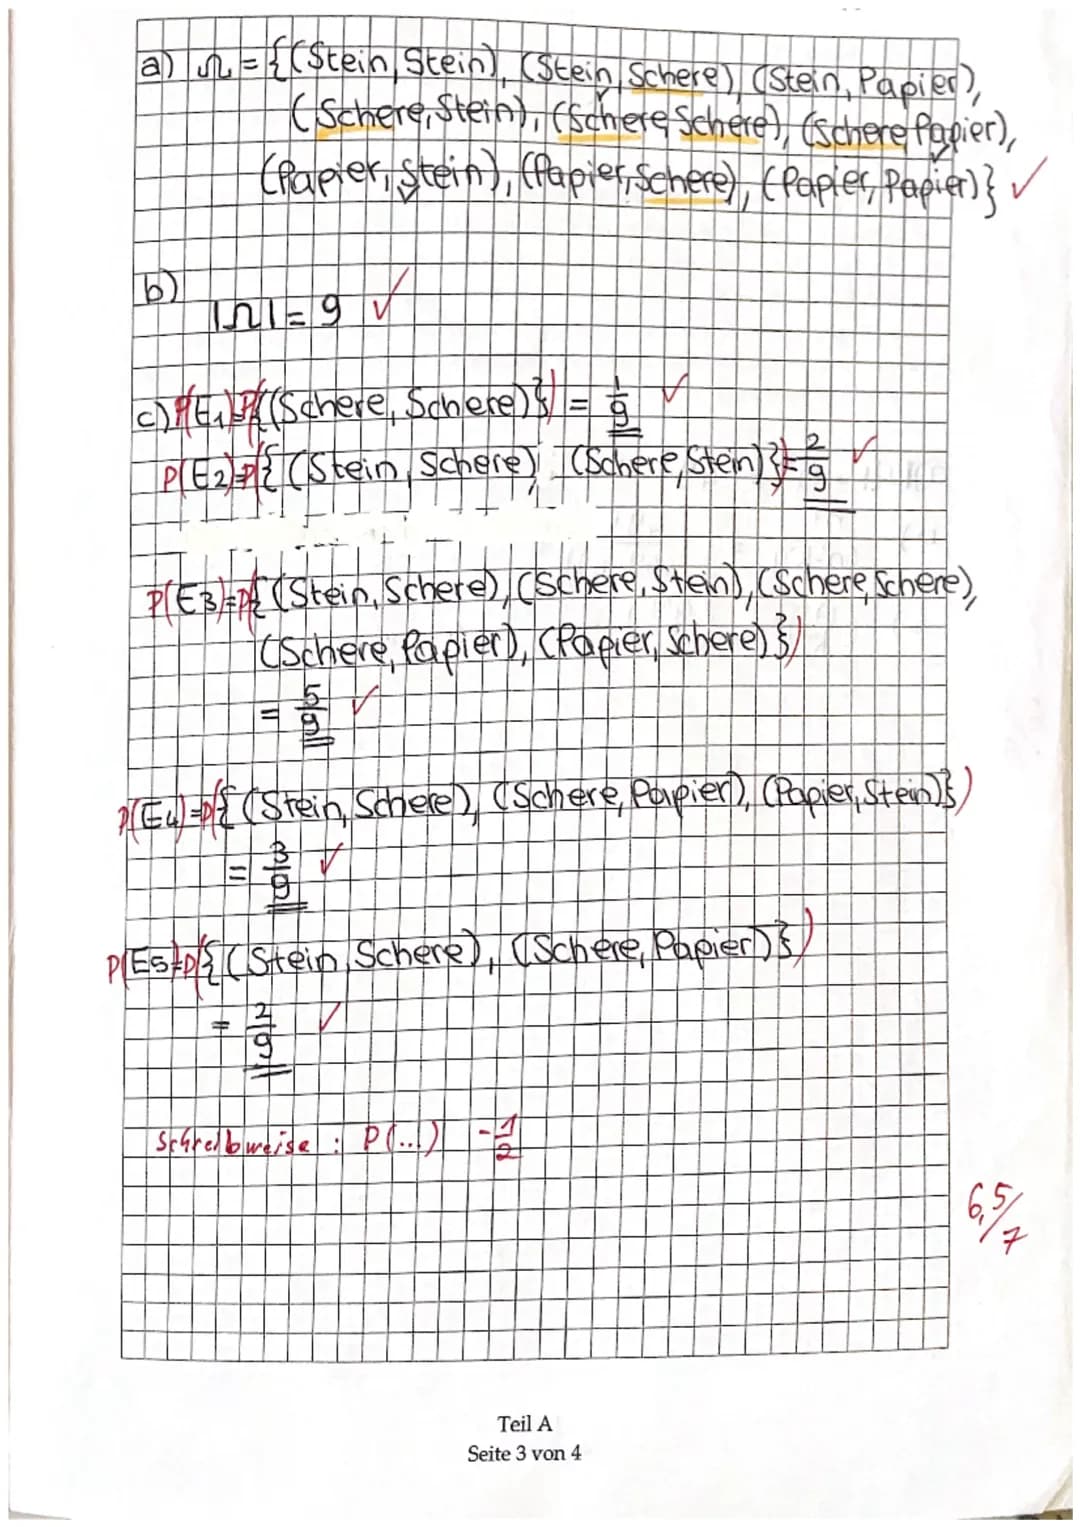 a) Ω = {(Stein, Stein), (Stein, Schere), (Stein, Papier),
(Schere, Stein), (Schere, Schere), (Schere, Papier),
(Papier, Stein), (Papier, Schere), (Papier, Papier)} ✓
b)
|Ω| = 9 ✓
c) P(E1)=P({(Schere, Schere)}) = 1/9 ✓
P(E2)=P({(Stein, Schere); (Schere, Stein)})= 2/9 ✓
P(E3)=P({(Stein, Schere), (Schere, Stein), (Schere, Schere),
(Schere, Papier), (Papier, Schere)})
= 5/9 ✓
P(E4)=P({(Stein, Schere), (Schere, Papier), (Papier, Stein)})
= 3/9 ✓
P(E5)=P({(Stein, Schere), (Schere, Papier)})
= 2/9 ✓
Schreibweise : P(...) -1/2
6,5/7
Teil A
Seite 3 von 4